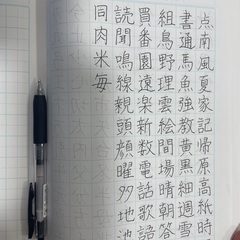 点南風夏家記帰原高紙時
書通馬魚強教黄黒細週雪
組鳥野理雲絵間場晴朝答
買番園遠楽新数電話歌語
読聞鳴線親頭顔曜多地池
同肉米毎